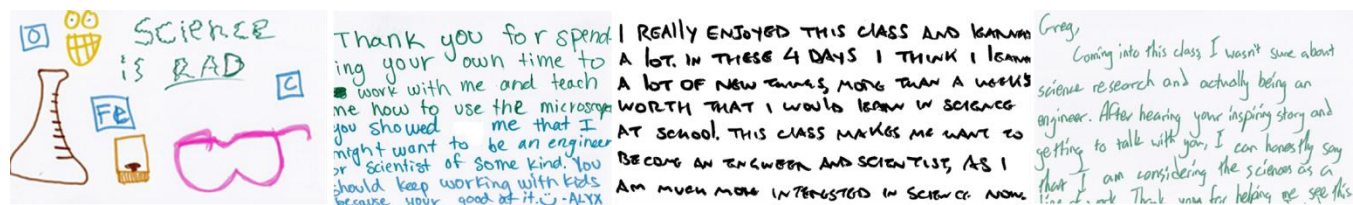 O
SCIENCE
is RAD
C
Fe
Thank you for spend
ing your own time to
work with me and teach
me how to use the microscope
you showed me that I
might want to be an engineer
or scientist of some kind. You
should keep working with kids
because your good at it. :) -ALYX
I REALLY ENJOYED THIS CLASS AND LEARNED
A LOT. IN THESE 4 DAYS I THINK I LEARN
A LOT OF NEW THINGS, MORE THAN A WEEKS
WORTH THAT I WOULD LEARN IN SCIENCE
AT SCHOOL. THIS CLASS MAKES ME WANT TO
BECOME AN ENGINEER AND SCIENTIST, AS I
AM MUCH MORE INTERESTED IN SCIENCE NOW.
Greg,
Coming into this class, I wasn't sure about
science research and actually being an
engineer. After hearing your inspiring story and
getting to talk with you, I can honestly say
that I am considering the sciences as a
line of work. Thank you for helping me see this